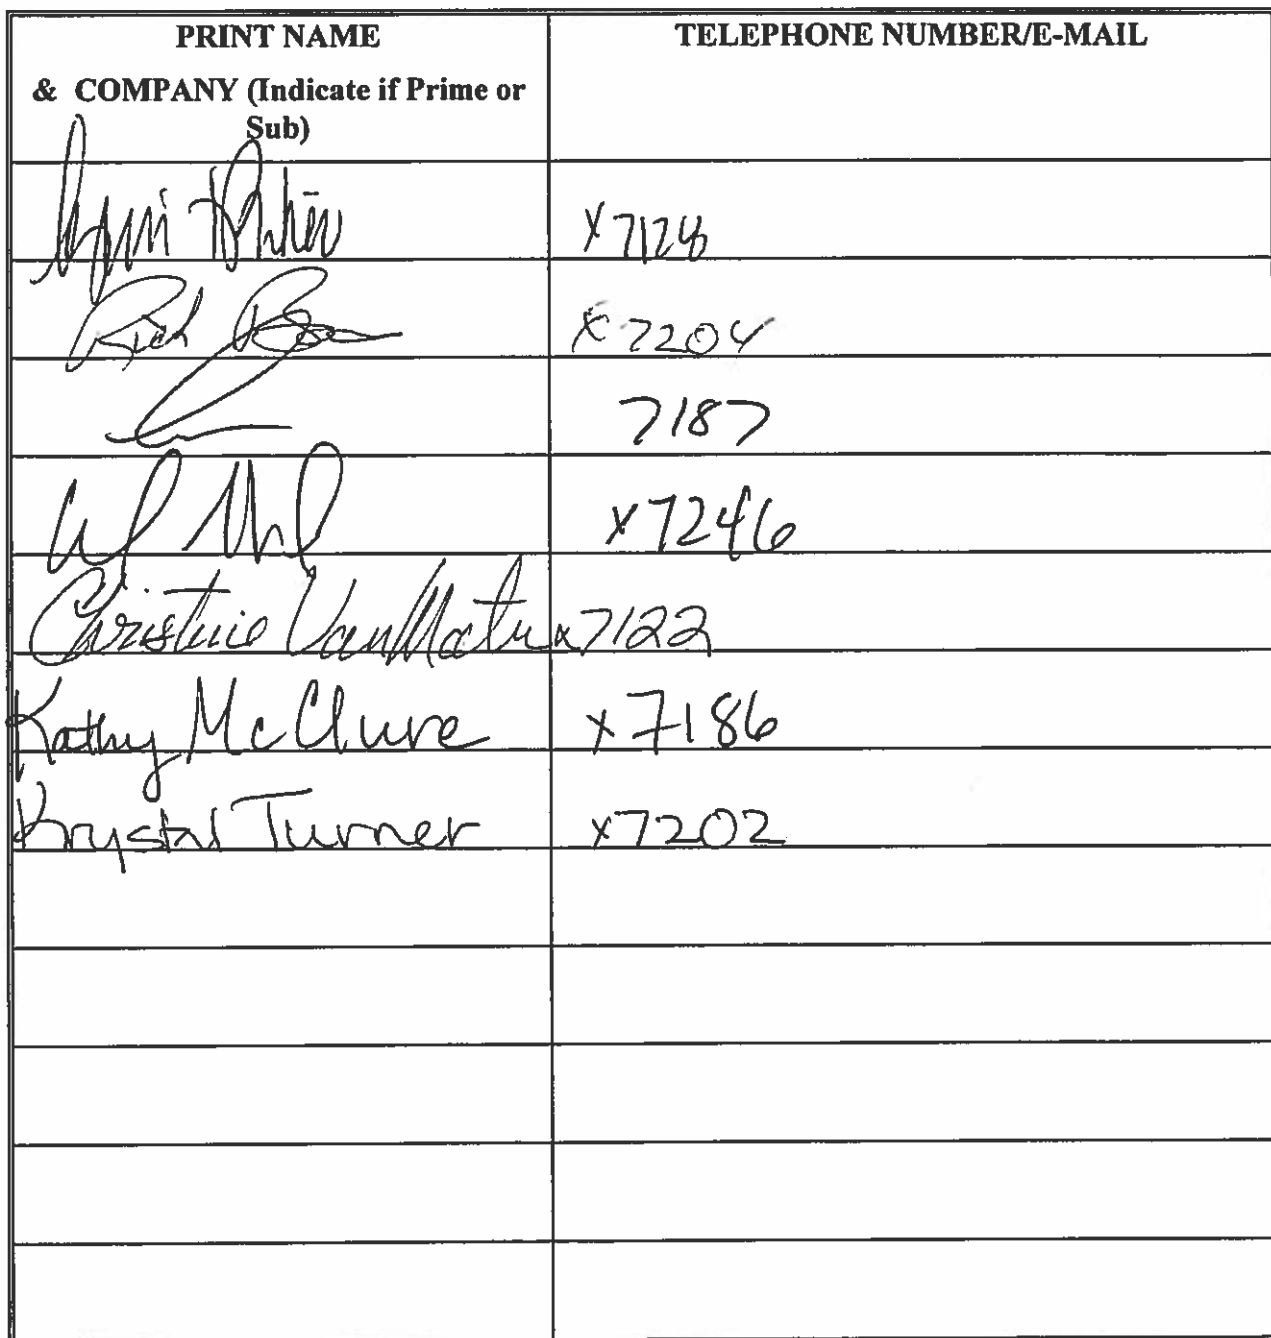 PRINT NAME
& COMPANY (Indicate if Prime or
Sub)
TELEPHONE NUMBER/E-MAIL
x7128
Rick
x7204
7187
x7246
Christine VanMatre x7122
Kathy McClure x7186
Krystal Turner x7202